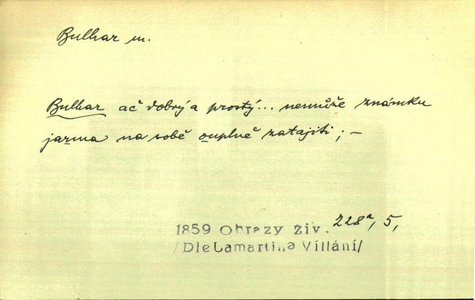 Bulhar m.
Bulhar ač dobrý a prostý... nemůže známku
jazma na sobě ouplně zatajiti; –
1859 Obrazy živ. 228a, 5,
/Dle Lamartina Villání/